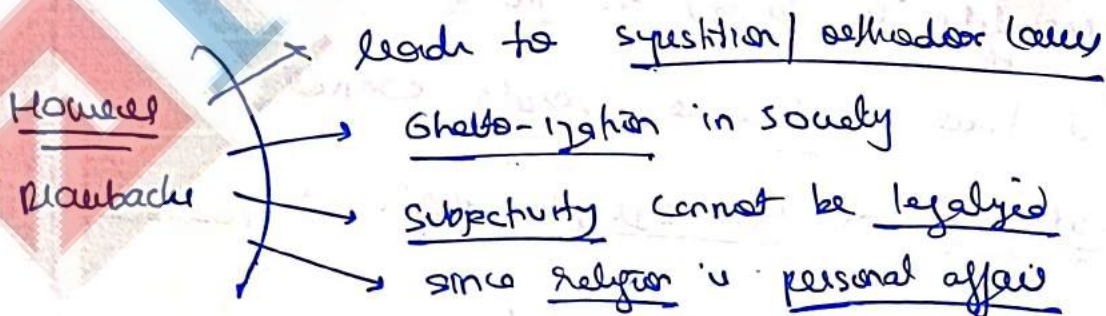 However
Drawbacks
lead to supestition / orthodox laws
Ghetto-ization in society
subjectivity cannot be legalyied
since religion is personal affair